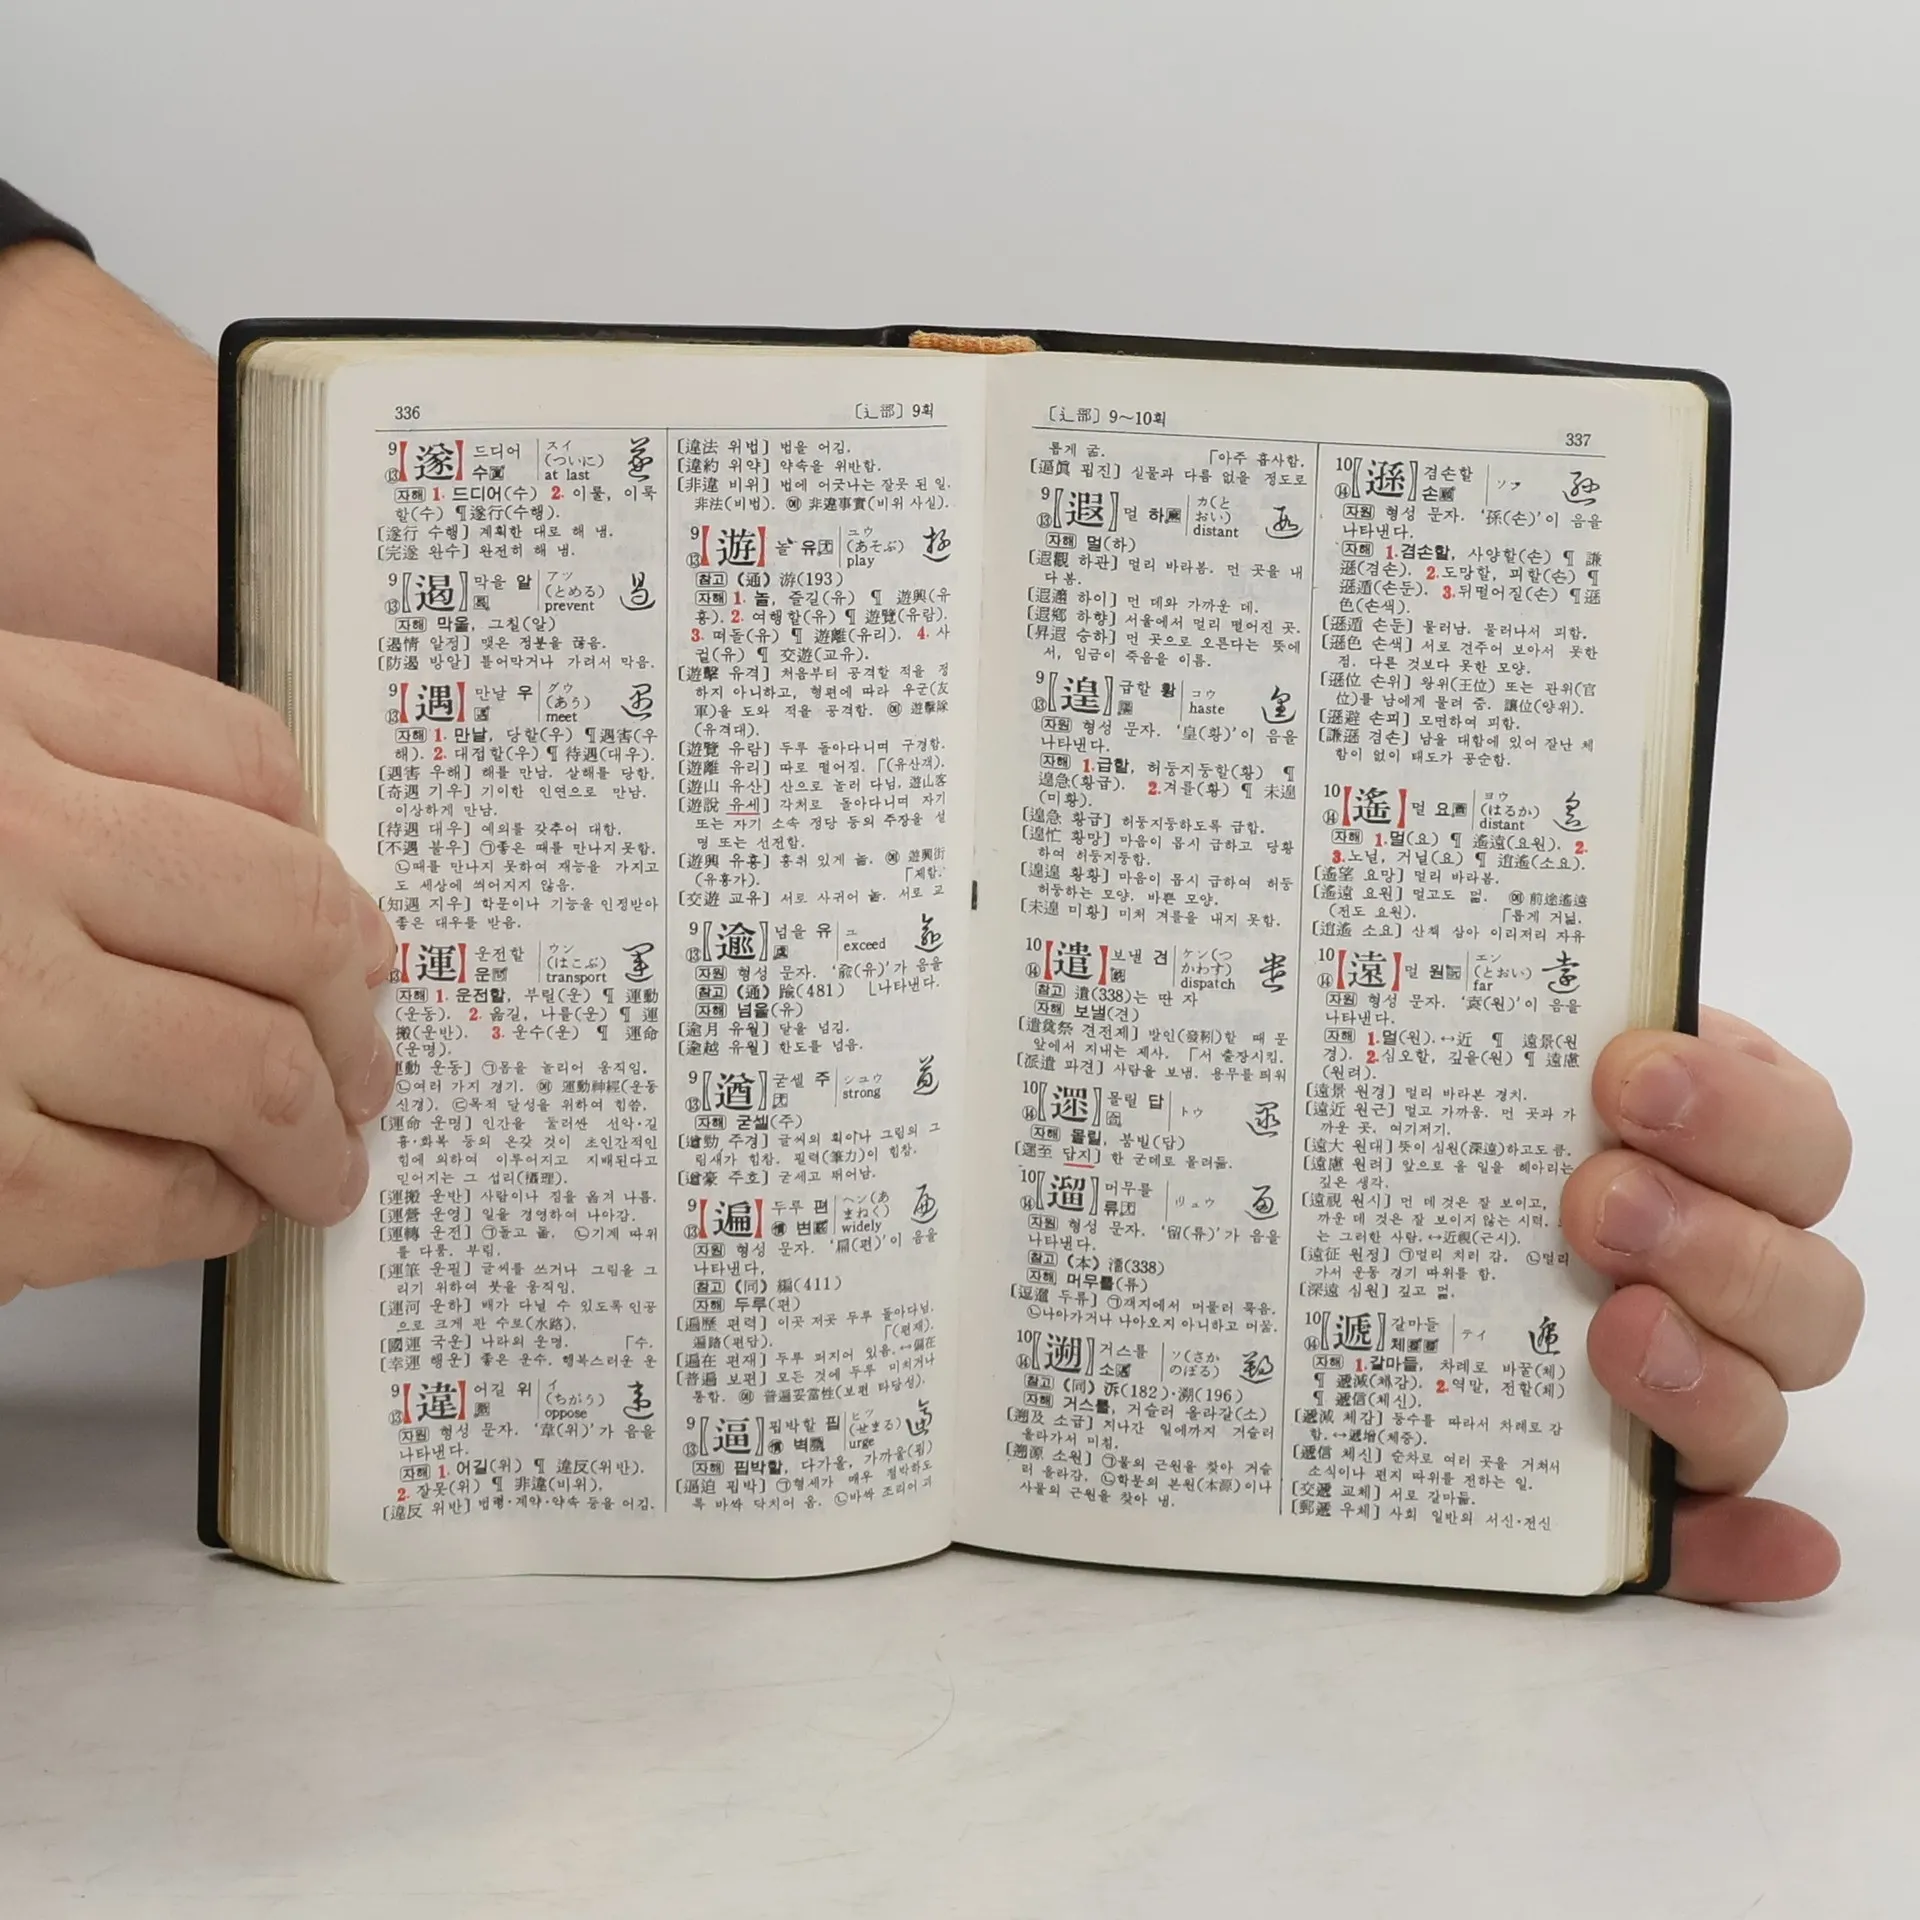 336
〔辶部〕 9획
9 【遂】 드디어 スイ
⑬ 수 (ついに)
at last
자해 1. 드디어(수) 2. 이룰, 이룩
할(수) ¶遂行(수행).
[遂行 수행] 계획한 대로 해 냄.
[完遂 완수] 완전히 해 냄.
9 〖遏〗 막을 알 アツ
⑬ (とめる)
prevent
자해 막을, 그칠(알)
[遏情 알정] 맺은 정분을 끊음.
[防遏 방알] 틀어막거나 가려서 막음.
9 【遇】 만날 우 グウ
⑬ (あう)
meet
자해 1. 만날, 당할(우) ¶遇害(우
해). 2. 대접할(우) ¶待遇(대우).
[遇害 우해] 해를 만남. 살해를 당함.
[奇遇 기우] 기이한 인연으로 만남.
이상하게 만남.
[待遇 대우] 예의를 갖추어 대함.
[不遇 불우] ㉠좋은 때를 만나지못함.
㉡때를 만나지 못하여 재능을 가지고
도 세상에 씌어지지 않음.
[知遇 지우] 학문이나 기능을 인정받아
좋은 대우를 받음.
【運】 운전할 ウン
⑬ 운 (はこぶ)
transport
자해 1. 운전할, 부릴(운) ¶ 運動
(운동). 2. 옮길, 나를(운) ¶ 運
搬(운반). 3. 운수(운) ¶ 運命
(운명).
運動 운동] ㉠몸을 놀리어 움직임.
㉡여러 가지 경기. 예 運動神經(운동
신경). ㉢목적 달성을 위하여 힘씀.
[運命 운명] 인간을 둘러싼 선악·길
흉·화복 등의 온갖 것이 초인간적인
힘에 의하여 이루어지고 지배된다고
믿어지는 그 섭리(攝理).
[運搬 운반] 사람이나 짐을 옮겨 나름.
[運營 운영] 일을 경영하여 나아감.
[運轉 운전] ㉠돌고 돎. ㉡기계 따위
를 다룸. 부림.
[運筆 운필] 글씨를 쓰거나 그림을 그
리기 위하여 붓을 움직임.
[運河 운하] 배가 다닐 수 있도록 인공
으로 크게 판 수로(水路).
[國運 국운] 나라의 운명. 「수.
[幸運 행운] 좋은 운수. 행복스러운 운
9 【違】 어길 위 イ
⑬ (ちがう)
oppose
자원 형성 문자. ‘韋(위)’가 음을
나타낸다.
자해 1. 어길(위) ¶ 違反(위반).
2. 잘못(위) ¶ 非違(비위).
[違反 위반] 법령·계약·약속 등을 어김.
[違法 위법] 법을 어김.
[違約 위약] 약속을 위반함.
[非違 비위] 법에 어긋나는 잘못 된 일.
非法(비법). 예 非違事實(비위 사실).
9 【遊】 놀 유 ユウ
⑬ (あそぶ)
play
참고 (通) 游(193)
자해 1. 놀, 즐길(유) ¶ 遊興(유
흥). 2. 여행할(유) ¶ 遊覽(유람).
3. 떠돌(유) ¶ 遊離(유리). 4. 사
귈(유) ¶ 交遊(교유).
[遊擊 유격] 처음부터 공격할 적을 정
하지 아니하고, 형편에 따라 우군(友
軍)을 도와 적을 공격함. 예 遊擊隊
(유격대).
[遊覽 유람] 두루 돌아다니며 구경함.
[遊離 유리] 따로 떨어짐. 「(유산객).
[遊山 유산] 산으로 놀러 다님. 遊山客
[遊說 유세] 각처로 돌아다니며 자기
또는 자기 소속 정당 등의 주장을 설
명 또는 선전함.
[遊興 유흥] 흥취 있게 놂. 예 遊興街
(유흥가). 「제함.
[交遊 교유] 서로 사귀어 놂. 서로 교
9 〖逾〗 넘을 유 ユ
⑬ exceed
자원 형성 문자. ‘兪(유)’가 음을
참고 (通) 踰(481) 〔나타낸다.
자해 넘을(유)
[逾月 유월] 달을 넘김.
[逾越 유월] 한도를 넘음.
9 〖遒〗 굳셀 주 シュウ
⑬ strong
자해 굳셀(주)
[遒勁 주경] 글씨의 획이나 그림의 그
림새가 힘참. 필력(筆力)이 힘참.
[遒豪 주호] 굳세고 뛰어남.
9 【遍】 두루 편 ヘン(あ
⑬ 변 まねく)
widely
자원 형성 문자. ‘扁(편)’이 음을
나타낸다.
참고 (同) 徧(411)
자해 두루(편)
[遍歷 편력] 이곳 저곳 두루 돌아다님.
遍踏(편답). 「(편재).
[遍在 편재] 두루 퍼지어 있음. ↔偏在
[普遍 보편] 모든 것에 두루 미치거나
통함. 예 普遍妥當性(보편 타당성).
9 〖逼〗 핍박할 핍 ヒツ
⑬ 벽 (せまる)
urge
자해 핍박할, 다가올, 가까울(핍)
[逼迫 핍박] ㉠형세가 매우 절박하도
록 바싹 닥치어 옴. ㉡바싹 조리어 괴
〔辶部〕 9～10획
337
롭게 굶. 「아주 흡사함.
[逼眞 핍진] 실물과 다름 없을 정도로
9 〖遐〗 멀 하 カ(と
⑬ おい)
distant
자해 멀(하)
[遐觀 하관] 멀리 바라봄. 먼 곳을 내
다 봄.
[遐邇 하이] 먼 데와 가까운 데.
[遐鄕 하향] 서울에서 멀리 떨어진 곳.
[昇遐 승하] 먼 곳으로 오른다는 뜻에
서, 임금이 죽음을 이름.
9 〖遑〗 급할 황 コウ
⑬ haste
자원 형성 문자. ‘皇(황)’이 음을
나타낸다.
자해 1. 급할, 허둥지둥할(황) ¶
遑急(황급). 2. 겨를(황) ¶ 未遑
(미황).
[遑急 황급] 허둥지둥하도록 급함.
[遑忙 황망] 마음이 몹시 급하고 당황
하여 허둥지둥함.
[遑遑 황황] 마음이 몹시 급하여 허둥
허둥하는 모양. 바쁜 모양.
[未遑 미황] 미처 겨를을 내지 못함.
10 【遣】 보낼 견 ケン(つ
⑭ かわす)
dispatch
참고 遺(338)는 딴 자
자해 보낼(견)
[遣奠祭 견전제] 발인(發靷)할 때 문
앞에서 지내는 제사. 「서 출장시킴.
[派遣 파견] 사람을 보냄. 용무를 띄워
10 〖遝〗 몰릴 답 トウ
⑭
자해 몰릴, 붐빌(답)
[遝至 답지] 한 군데로 몰려듦.
10 〖遛〗 머무를 リュウ
류
자원 형성 문자. ‘留(류)’가 음을
나타낸다.
참고 (本) 遛(338)
자해 머무를(류)
[逗遛 두류] ㉠객지에서 머물러 묵음.
㉡나아가거나 나아오지 아니하고 머묾.
10 〖遡〗 거스를 ソ(さか
⑭ 소 のぼる)
참고 (同) 泝(182)·溯(196)
자해 거스를, 거슬러 올라갈(소)
[遡及 소급] 지나간 일에까지 거슬러
올라가서 미침.
[遡源 소원] ㉠물의 근원을 찾아 거슬
러 올라감. ㉡학문의 본원(本源)이나
사물의 근원을 찾아 냄.
10 〖遜〗 겸손할 ソン
⑭ 손
자원 형성 문자. ‘孫(손)’이 음을
나타낸다.
자해 1. 겸손할, 사양할(손) ¶ 謙
遜(겸손). 2. 도망할, 피할(손) ¶
遜遁(손둔). 3. 뒤떨어질(손) ¶遜
色(손색).
[遜遁 손둔] 물러남. 물러나서 피함.
[遜色 손색] 서로 견주어 보아서 못한
점. 다른 것보다 못한 모양.
[遜位 손위] 왕위(王位) 또는 관위(官
位)를 남에게 물려 줌. 讓位(양위).
[遜避 손피] 모면하여 피함.
[謙遜 겸손] 남을 대함에 있어 잘난 체
함이 없이 태도가 공순함.
10 【遙】 멀 요 ヨウ
⑭ (はるか)
distant
자해 1. 멀(요) ¶ 遙遠(요원). 2.
3. 노닐, 거닐(요) ¶ 逍遙(소요).
[遙望 요망] 멀리 바라봄.
[遙遠 요원] 멀고도 멂. 예 前途遙遠
(전도 요원). 「롭게 거닒.
[逍遙 소요] 산책 삼아 이리저리 자유
10 【遠】 멀 원 エン
⑭ (とおい)
far
자원 형성 문자. ‘袁(원)’이 음을
나타낸다.
자해 1. 멀(원). ↔近 ¶ 遠景(원
경). 2. 심오할, 깊을(원) ¶ 遠慮
(원려).
[遠景 원경] 멀리 바라본 경치.
[遠近 원근] 멀고 가까움. 먼 곳과 가
까운 곳. 여기저기.
[遠大 원대] 뜻이 심원(深遠)하고도 큼.
[遠慮 원려] 앞으로 올 일을 헤아리는
깊은 생각.
[遠視 원시] 먼 데 것은 잘 보이고,
까운 데 것은 잘 보이지 않는 시력.
는 그러한 사람. ↔近視(근시).
[遠征 원정] ㉠멀리 치러 감. ㉡멀리
가서 운동 경기 따위를 함.
[深遠 심원] 깊고 멂.
10 〖遞〗 갈마들 テイ
⑭ 체
자해 1. 갈마들, 차례로 바꿀(체)
¶ 遞減(체감). 2. 역말, 전할(체)
¶ 遞信(체신).
[遞減 체감] 등수를 따라서 차례로 감
함. ↔遞增(체증).
[遞信 체신] 순차로 여러 곳을 거쳐서
소식이나 편지 따위를 전하는 일.
[交遞 교체] 서로 갈마듦.
[郵遞 우체] 사회 일반의 서신·전신